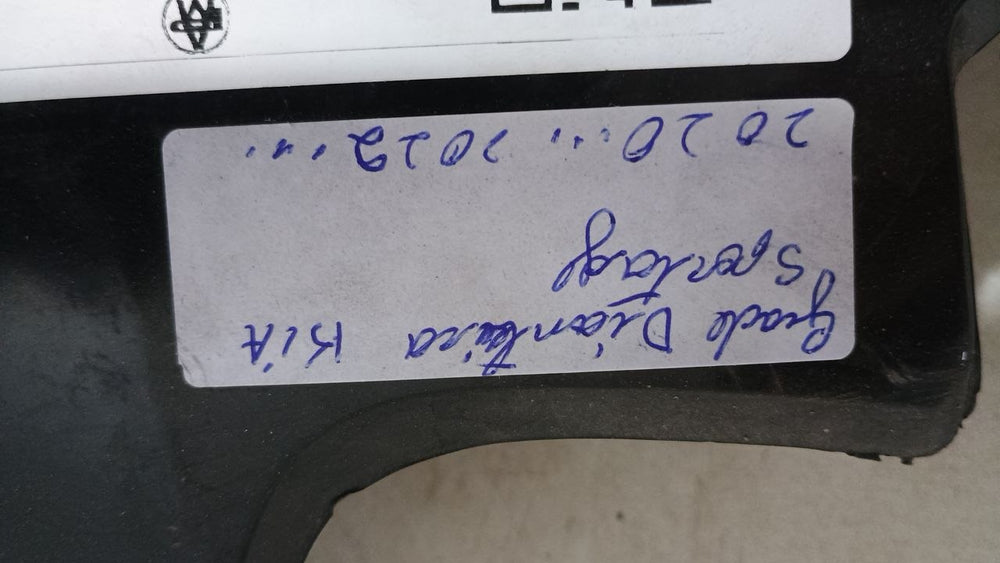 Grade Dianteira KIA
Sportage
2020... 2022...